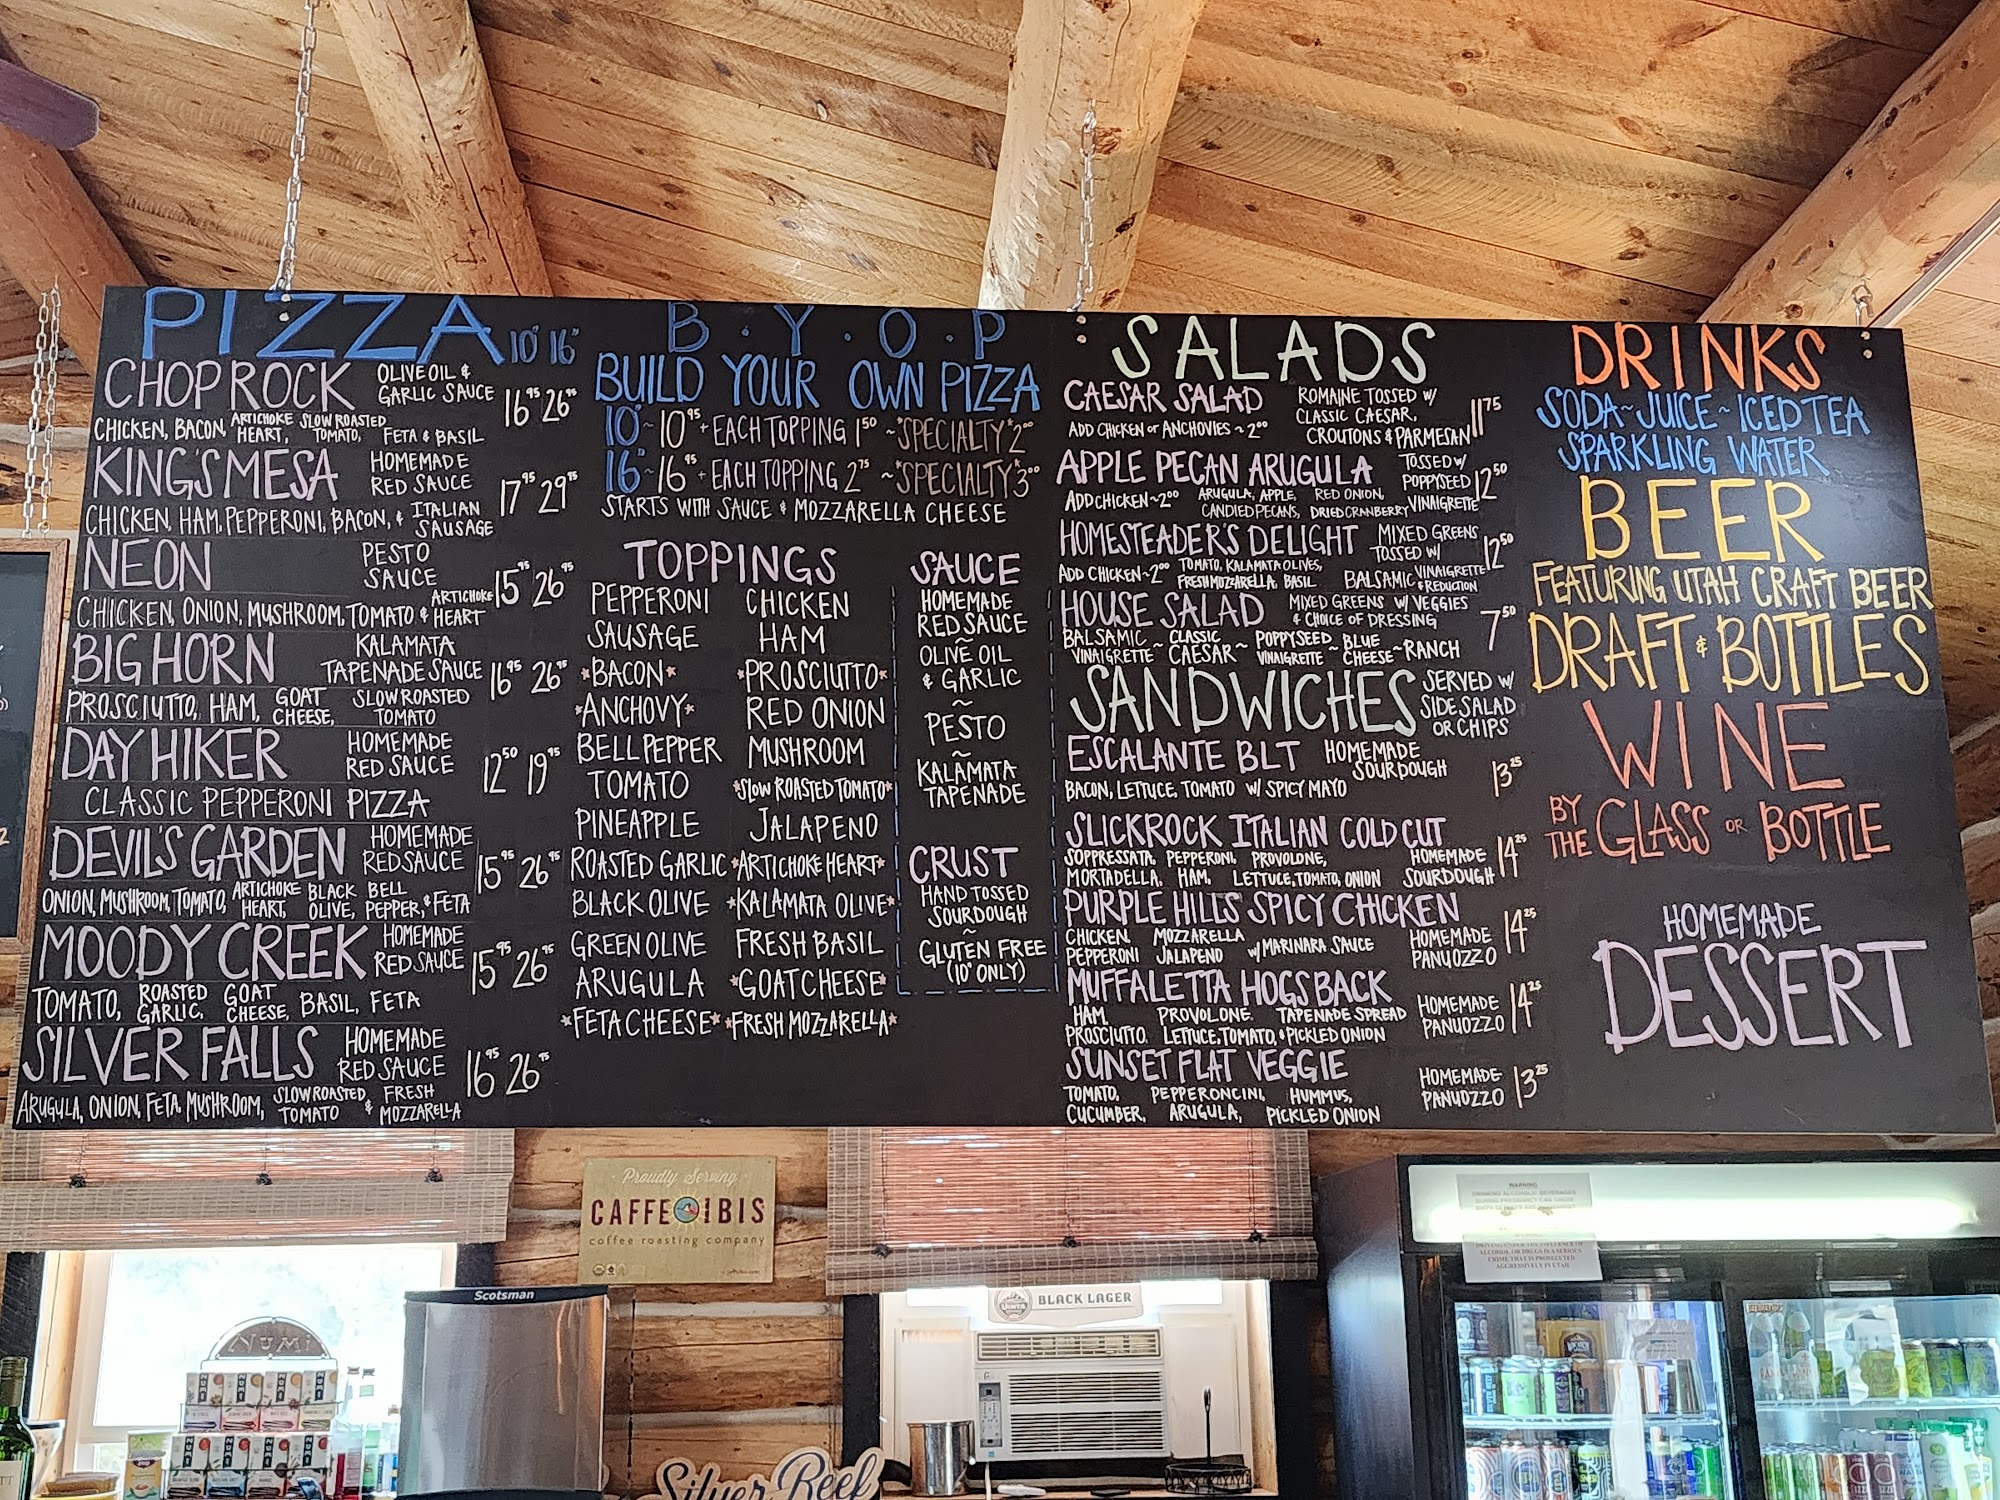 PIZZA 10" 16"
CHOP ROCK OLIVE OIL & GARLIC SAUCE 16.95 26.95
CHICKEN, BACON, ARTICHOKE HEART, SLOW ROASTED TOMATO, FETA & BASIL
KING'S MESA HOMEMADE RED SAUCE 17.95 29.95
CHICKEN, HAM, PEPPERONI, BACON, & ITALIAN SAUSAGE
NEON PESTO SAUCE 15.95 26.95
CHICKEN, ONION, MUSHROOM, TOMATO & ARTICHOKE HEART
BIG HORN KALAMATA TAPENADE SAUCE 16.95 26.95
PROSCIUTTO, HAM, GOAT CHEESE, SLOW ROASTED TOMATO
DAY HIKER HOMEMADE RED SAUCE 12.50 19.95
CLASSIC PEPPERONI PIZZA
DEVIL'S GARDEN HOMEMADE RED SAUCE 15.95 26.95
ONION, MUSHROOM, TOMATO, ARTICHOKE HEART, BLACK OLIVE, BELL PEPPER, & FETA
MOODY CREEK HOMEMADE RED SAUCE 15.95 26.95
TOMATO, ROASTED GARLIC, GOAT CHEESE, BASIL, FETA
SILVER FALLS HOMEMADE RED SAUCE 16.95 26.95
ARUGULA, ONION, FETA, MUSHROOM, SLOW ROASTED TOMATO & FRESH MOZZARELLA
B.Y.O.P
BUILD YOUR OWN PIZZA
10" ~ 10.95 + EACH TOPPING 1.50 ~ *SPECIALTY* 2.00
16" ~ 16.95 + EACH TOPPING 2.75 ~ *SPECIALTY* 3.00
STARTS WITH SAUCE & MOZZARELLA CHEESE
TOPPINGS
PEPPERONI CHICKEN
SAUSAGE HAM
*BACON* *PROSCIUTTO*
*ANCHOVY* RED ONION
BELL PEPPER MUSHROOM
TOMATO *SLOW ROASTED TOMATO*
PINEAPPLE JALAPENO
ROASTED GARLIC *ARTICHOKE HEART*
BLACK OLIVE *KALAMATA OLIVE*
GREEN OLIVE FRESH BASIL
ARUGULA *GOAT CHEESE*
*FETA CHEESE* *FRESH MOZZARELLA*
SAUCE
HOMEMADE
RED SAUCE
~
OLIVE OIL
& GARLIC
~
PESTO
~
KALAMATA
TAPENADE
CRUST
HAND TOSSED
SOURDOUGH
~
GLUTEN FREE
(10" ONLY)
SALADS
CAESAR SALAD ROMAINE TOSSED W/ CLASSIC CAESAR, CROUTONS & PARMESAN 11.75
ADD CHICKEN or ANCHOVIES ~ 2.00
APPLE PECAN ARUGULA TOSSED W/ POPPYSEED VINAIGRETTE 12.50
ADD CHICKEN ~ 2.00 ARUGULA, APPLE, RED ONION, CANDIED PECANS, DRIED CRANBERRY
HOMESTEADER'S DELIGHT MIXED GREENS TOSSED W/ BALSAMIC VINAIGRETTE & REDUCTION 12.50
ADD CHICKEN ~ 2.00 TOMATO, KALAMATA OLIVES, FRESH MOZZARELLA, BASIL
HOUSE SALAD MIXED GREENS W/ VEGGIES & CHOICE OF DRESSING 7.50
BALSAMIC VINAIGRETTE ~ CLASSIC CAESAR ~ POPPYSEED VINAIGRETTE ~ BLUE CHEESE ~ RANCH
SANDWICHES SERVED W/ SIDE SALAD OR CHIPS
ESCALANTE BLT HOMEMADE SOURDOUGH 13.25
BACON, LETTUCE, TOMATO W/ SPICY MAYO
SLICKROCK ITALIAN COLD CUT HOMEMADE SOURDOUGH 14.25
SOPPRESSATA, PEPPERONI, PROVOLONE,
MORTADELLA, HAM, LETTUCE, TOMATO, ONION
PURPLE HILLS SPICY CHICKEN HOMEMADE PANUOZZO 14.25
CHICKEN, MOZZARELLA
PEPPERONI JALAPENO W/ MARINARA SAUCE
MUFFALETTA HOGSBACK HOMEMADE PANUOZZO 14.25
HAM, PROVOLONE, TAPENADE SPREAD
PROSCIUTTO, LETTUCE, TOMATO, & PICKLED ONION
SUNSET FLAT VEGGIE HOMEMADE PANUOZZO 13.25
TOMATO, PEPPERONCINI, HUMMUS,
CUCUMBER, ARUGULA, PICKLED ONION
DRINKS
SODA ~ JUICE ~ ICED TEA
SPARKLING WATER
BEER
FEATURING UTAH CRAFT BEER
DRAFT & BOTTLES
WINE
BY THE GLASS OR BOTTLE
HOMEMADE
DESSERT
Proudly Serving
CAFFE IBIS
coffee roasting company
Scotsman
UINTA
BLACK LAGER
NUMI
Silver Reef
WARNING
DRINKING ALCOHOLIC BEVERAGES
DURING PREGNANCY CAN CAUSE
DRIVING UNDER THE INFLUENCE OF
ALCOHOL OR DRUGS IS A SERIOUS
CRIME THAT IS PROSECUTED
AGGRESSIVELY IN UTAH